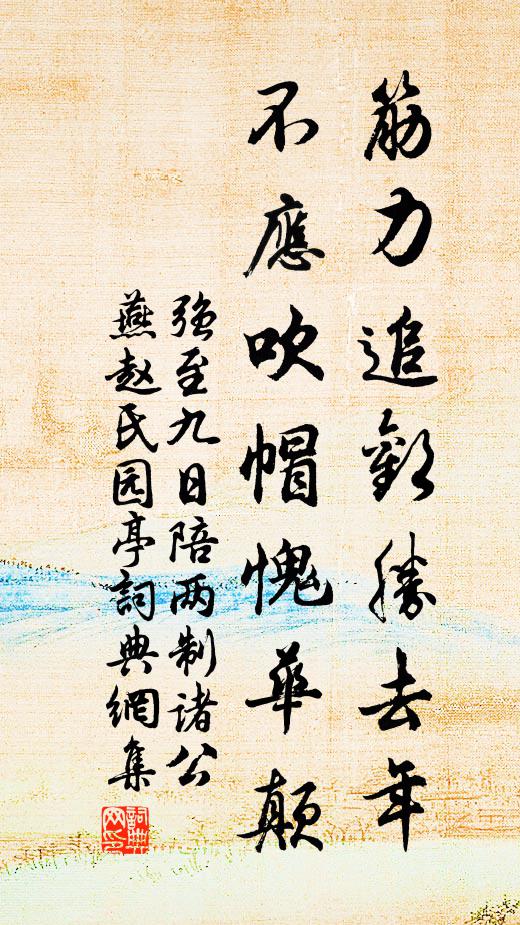 筋力追歡勝去年
不應吹帽愧華顛
强至九日陪两制诸公
燕赵民园亭詞典網集
詞典
网印